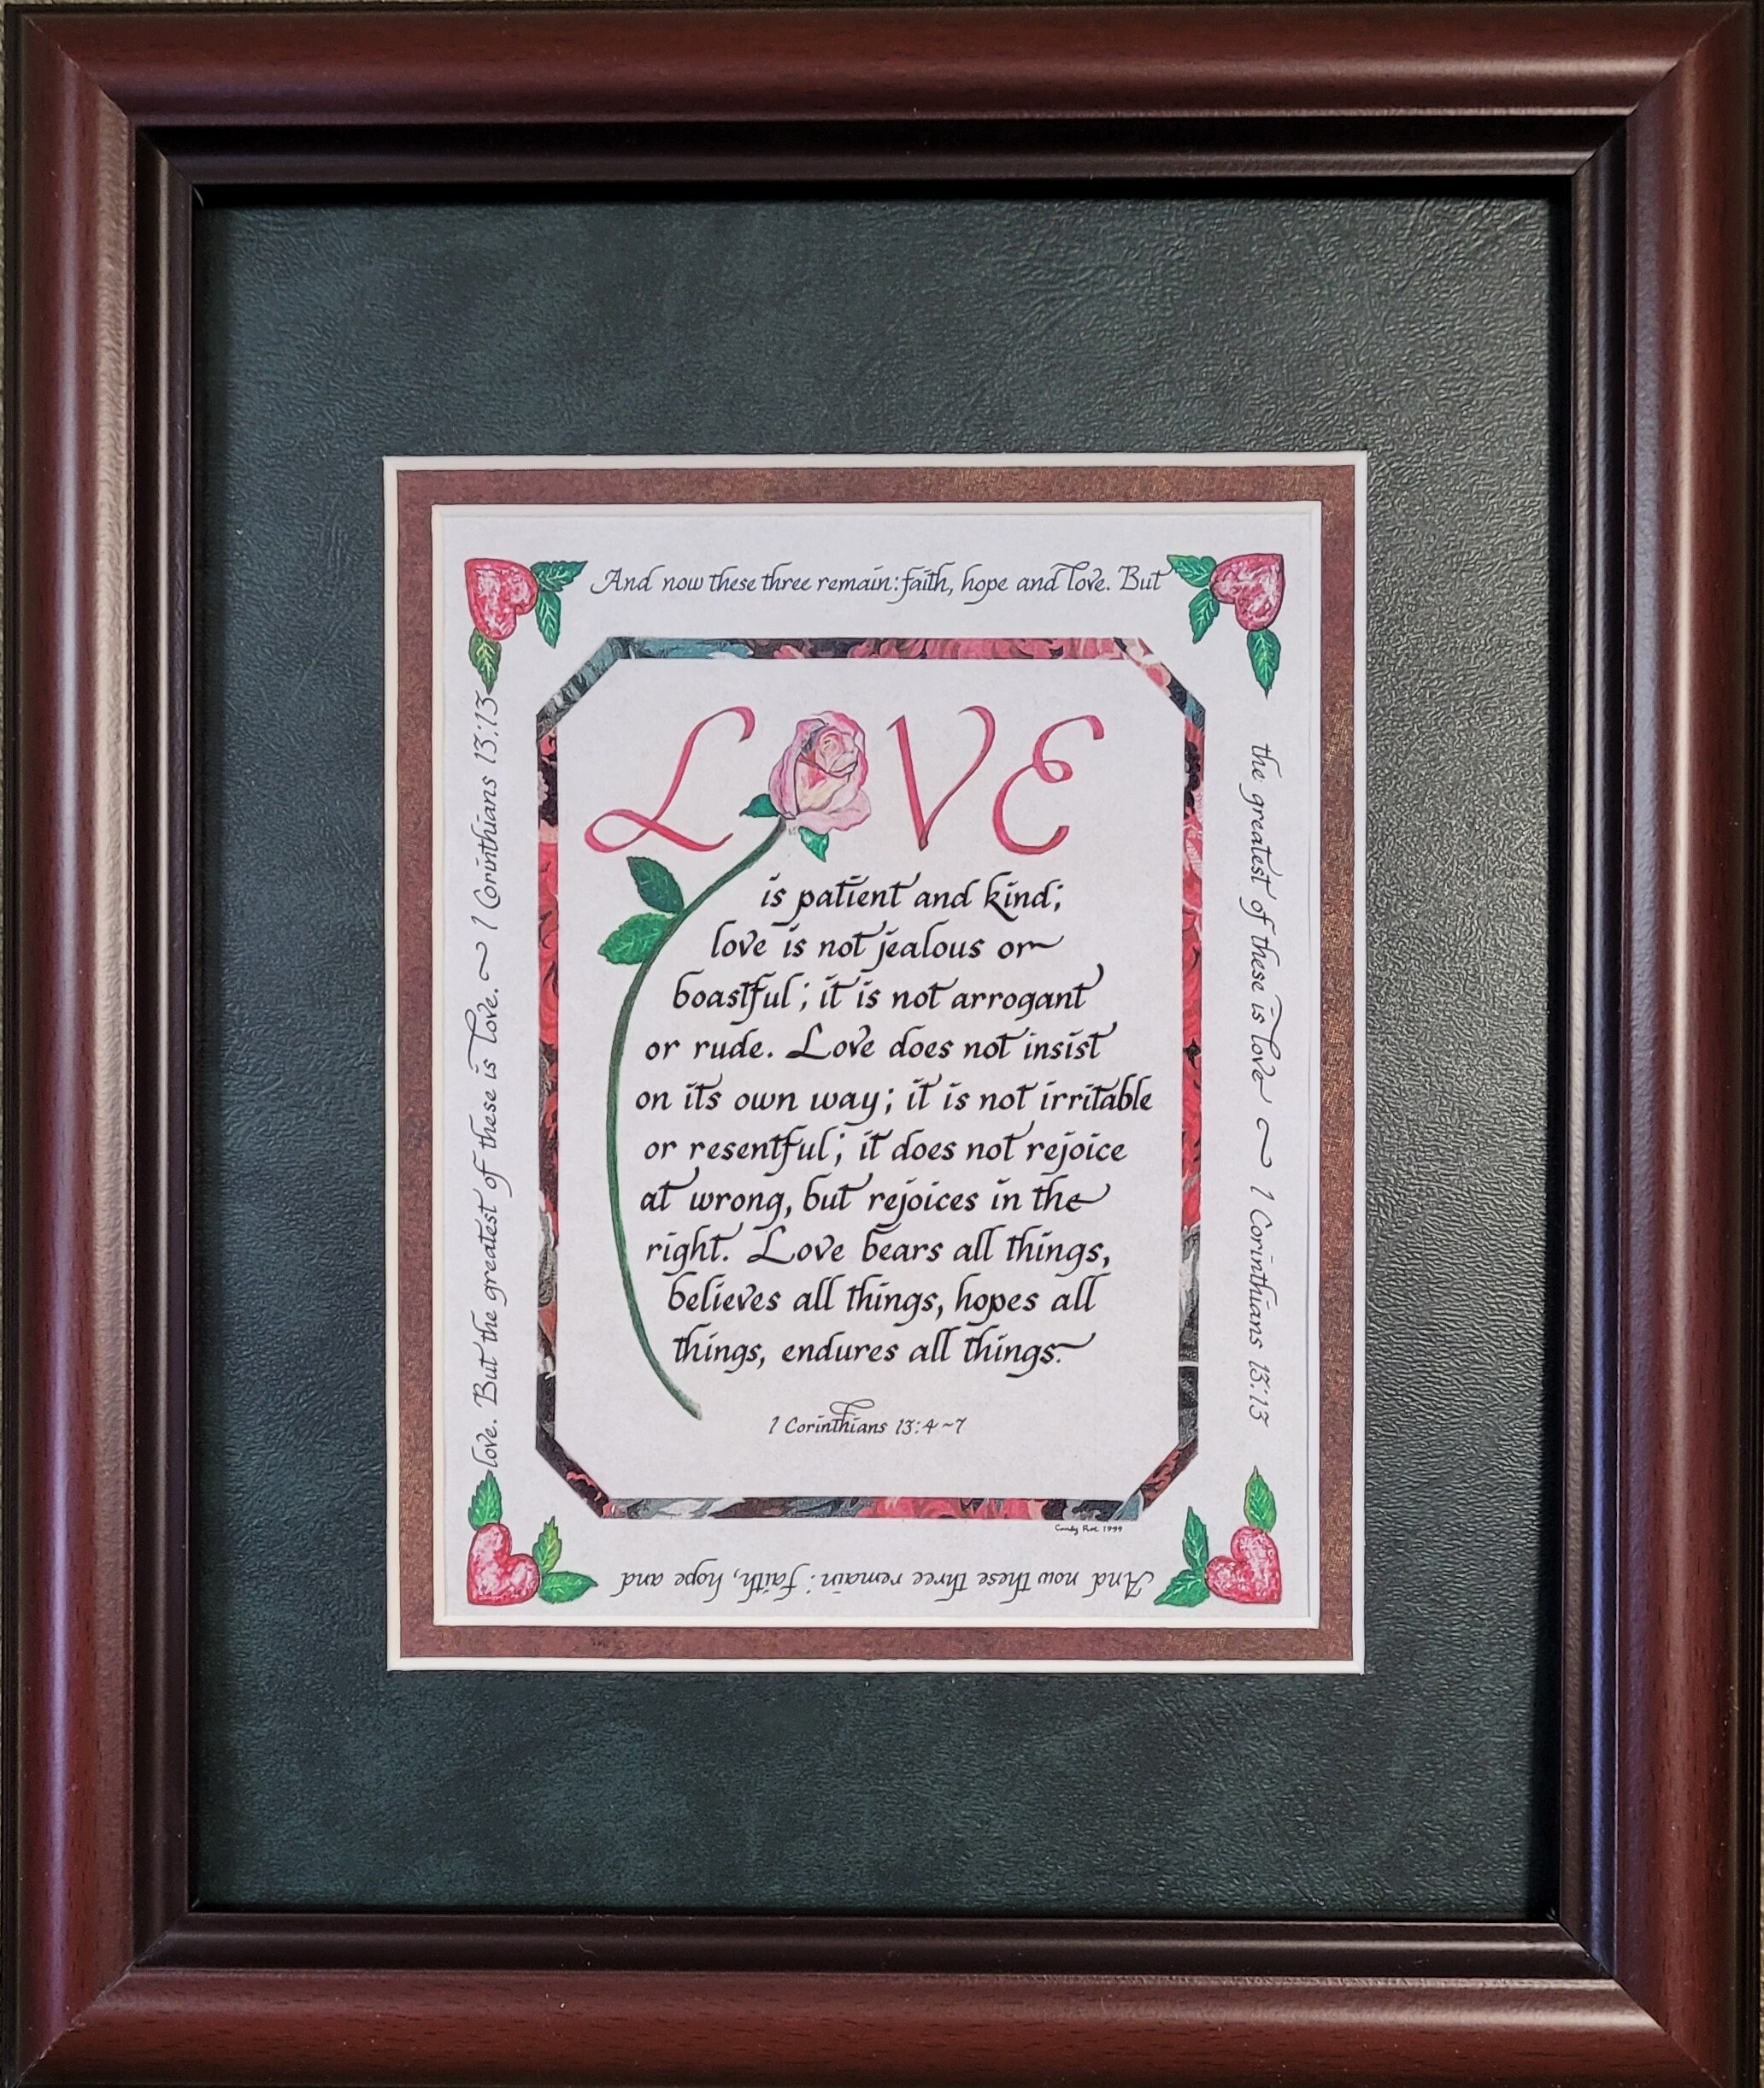 And now these three remain: faith, hope and love. But
the greatest of these is love ~ 1 Corinthians 13:13
And now these three remain: faith, hope and
love. But the greatest of these is love. ~ 1 Corinthians 13:13
LOVE
is patient and kind;
love is not jealous or
boastful; it is not arrogant
or rude. Love does not insist
on its own way; it is not irritable
or resentful; it does not rejoice
at wrong, but rejoices in the
right. Love bears all things,
believes all things, hopes all
things, endures all things.
1 Corinthians 13:4~7
1999